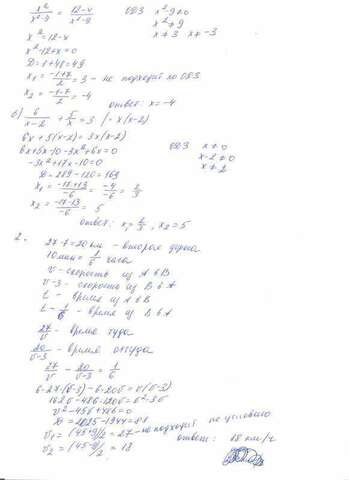 x²/(x²-9) = (12-x)/(x²-9) ОДЗ x²-9≠0
x²≠9
x² = 12-x x≠3 x≠-3
x²-12+x=0
D = 1+48=49
x₁ = (-1+7)/2 = 3 - не подходит по ОДЗ
x₂ = (-1-7)/2 = -4
ответ: x=-4
б) 6/(x-2) + 5/x = 3 |·x(x-2)
6x+5(x-2)=3x(x-2)
6x+5x-10-3x²+6x=0 ОДЗ x≠0
-3x²+17x-10=0 x-2≠0
D=289-120=169 x≠2
x₁ = (-17+13)/-6 = -4/-6 = 2/3
x₂ = (-17-13)/-6 = 5
ответ: x₁=2/3, x₂=5
2.
27-7=20км - вторая дорога
10мин = 1/6 часа
v - скорость из А в В
v-3 - скорость из В в А
t - время из А в В
t - 1/6 - время из В в А
27/v - время туда
20/(v-3) - время оттуда
27/v - 20/(v-3) = 1/6
6·27(v-3)-6·20v=v(v-3)
162v-486-120v=v²-3v
v²-45v+486=0
D=2025-1944=81
v₁=(45+9)/2=27 - не подходит по условию
v₂=(45-9)/2=18 ответ: 18 км/ч